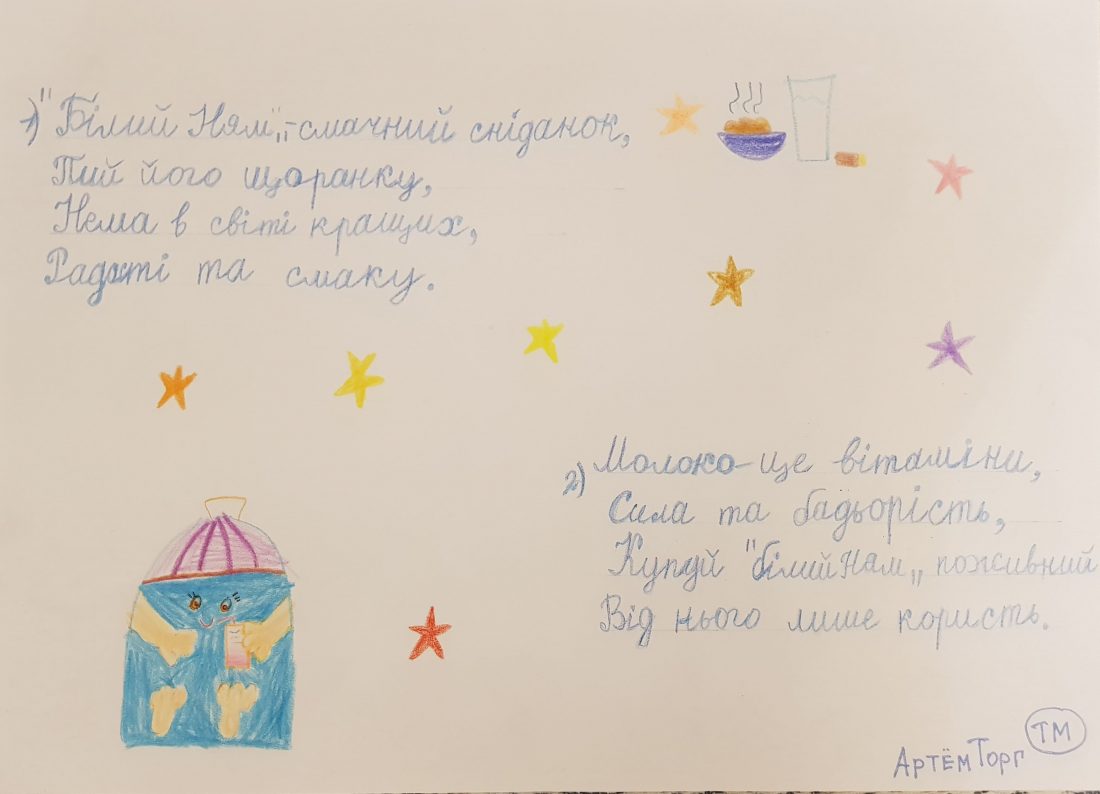 1) "Білий Ням„-смачний сніданок,
Пий його щоранку,
Нема в світі кращих,
Радості та смаку.
2) Молоко-це вітаміни,
Сила та бадьорість,
Купуй "білий Ням„ поживний
Від нього лише користь.
АртёмТорг ТМ